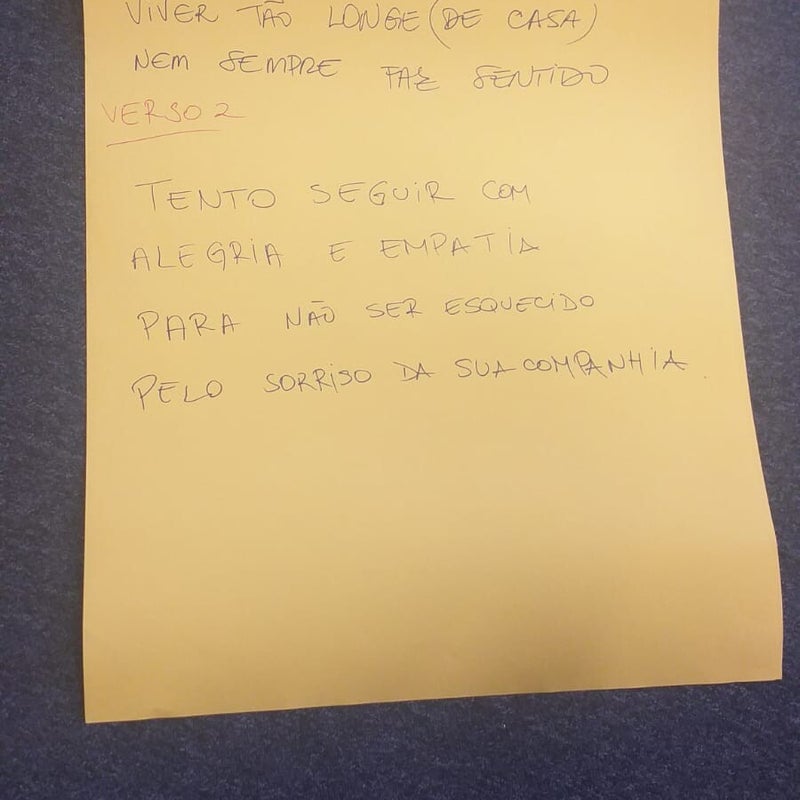 VIVER TÃO LONGE (DE CASA)
NEM SEMPRE FAZ SENTIDO
VERSO 2
TENTO SEGUIR COM
ALEGRIA E EMPATIA
PARA NÃO SER ESQUECIDO
PELO SORRISO DA SUA COMPANHIA.